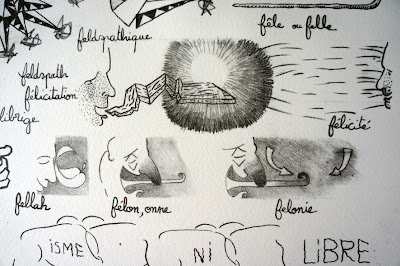 feldspathique
fêle ou felle
feldspath
félicitation
librige
félicité
fellah
félon, onne
felonie
ISME
NI
LIBRE